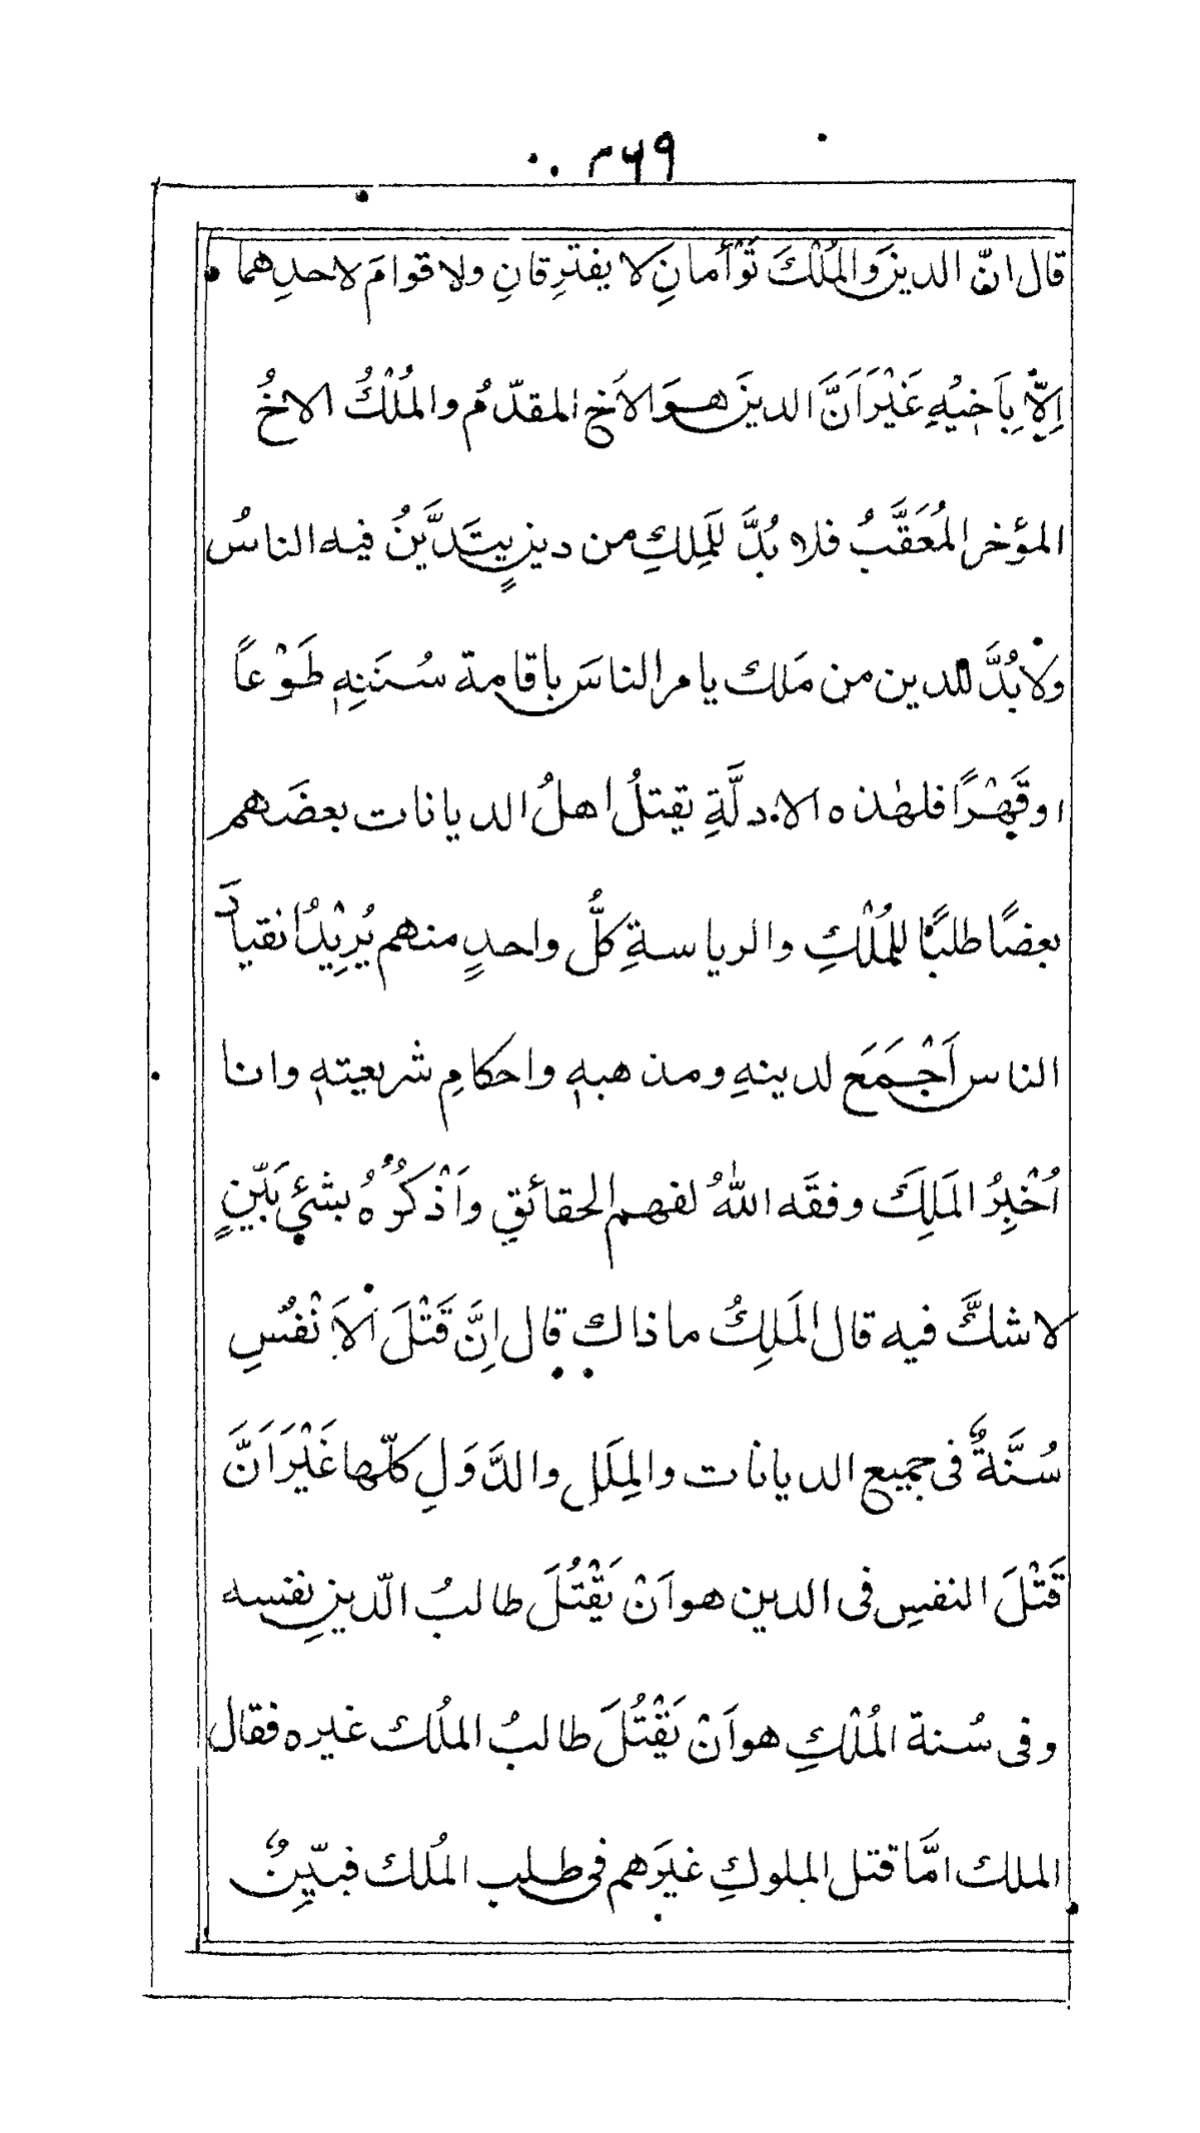 ۳۶۹
قال انَّ الدينَ والمُلْكَ تَوْأمانِ لا يفترِقانِ ولا قوامَ لاحدِهما
اِلّا بِاَخيْهِ غَيْرَ اَنَّ الدينَ هوَ الاَخ المقدّمُ والمُلْكُ الاخُ
المؤخر المُعَقَّبُ فلا بُدَّ لِلمَلِكِ من دينٍ يتَدَيَّنُ فيه الناسُ
ولا بُدَّ للدين من مَلك يامر الناسَ باقامة سُنَنِهٖ طَوْعاً
او قَهْرًا فلهٰذه الادلَّةِ يقتلُ اهلُ الديانات بعضَهم
بعضًا طلبًا لِلمُلْكِ والرياسةِ كلُّ واحدٍ منهم يُرِيْدُ انقيادَ
الناس اَجْمَعَ لدينهِ ومذهبهٖ واحكامِ شريعتهٖ وانا
اُخْبِرُ المَلِكَ وفقَه اللهُ لفهم الحقائقِ واَذْكُرُهُ بشئٍ بَيّنٍ
لا شكَّ فيه قال المَلِكُ ما ذاك قال اِنَّ قَتْلَ الاَنْفُسِ
سُنَّةٌ فى جميع الديانات والمِلَلِ والدَّوَلِ كلّها غَيْرَ اَنَّ
قَتْلَ النفسِ فى الدين هو اَنْ يَقْتُلَ طالبُ الدّينِ نفسه
وفى سُنة المُلْكِ هو اَنْ يَقْتُلَ طالبُ المُلك غيره فقال
الملك امَّا قتل الملوكِ غيرَهم فى طلب المُلك فبيّنٌ